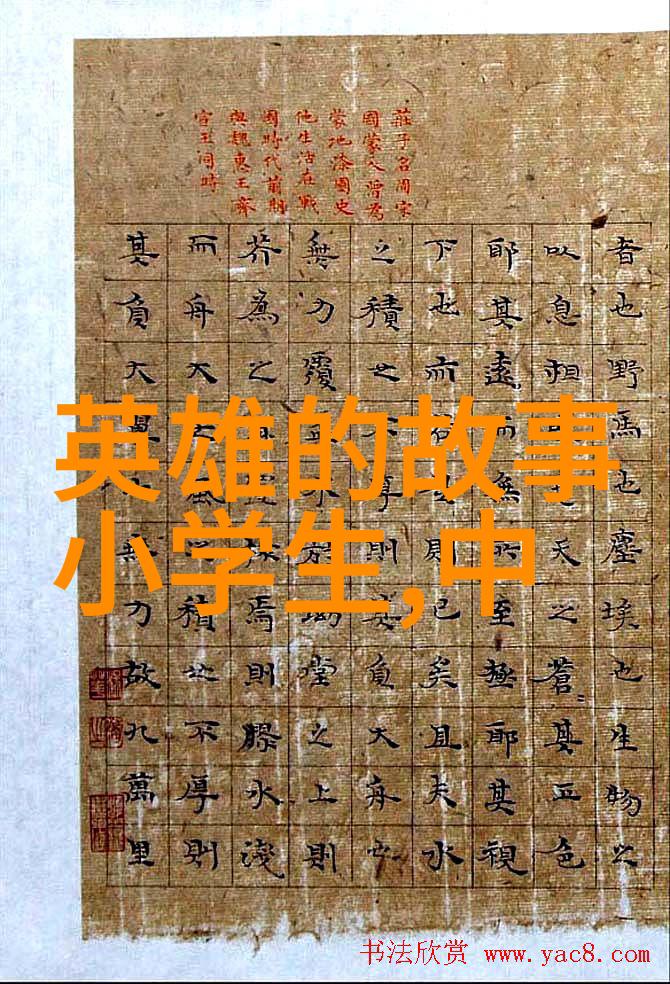 莊子名周宋
國蒙人曾為
蒙地漆園史
他生活在戰
國時代前期
與魏惠王齊
宣王同時
者也野馬也塵埃也生物之
以息相也天之蒼其正色
耶其遠而無所至極耶其視
下也而則已矣且夫水
之積也不厚則其負大舟也
無力覆水於坳堂之上則
芥為之焉則膠水淺
而舟大風之積也不厚則
其負大翼無力故九萬里
英雄的故事
小学生,中
书法欣赏 www.yac8.com